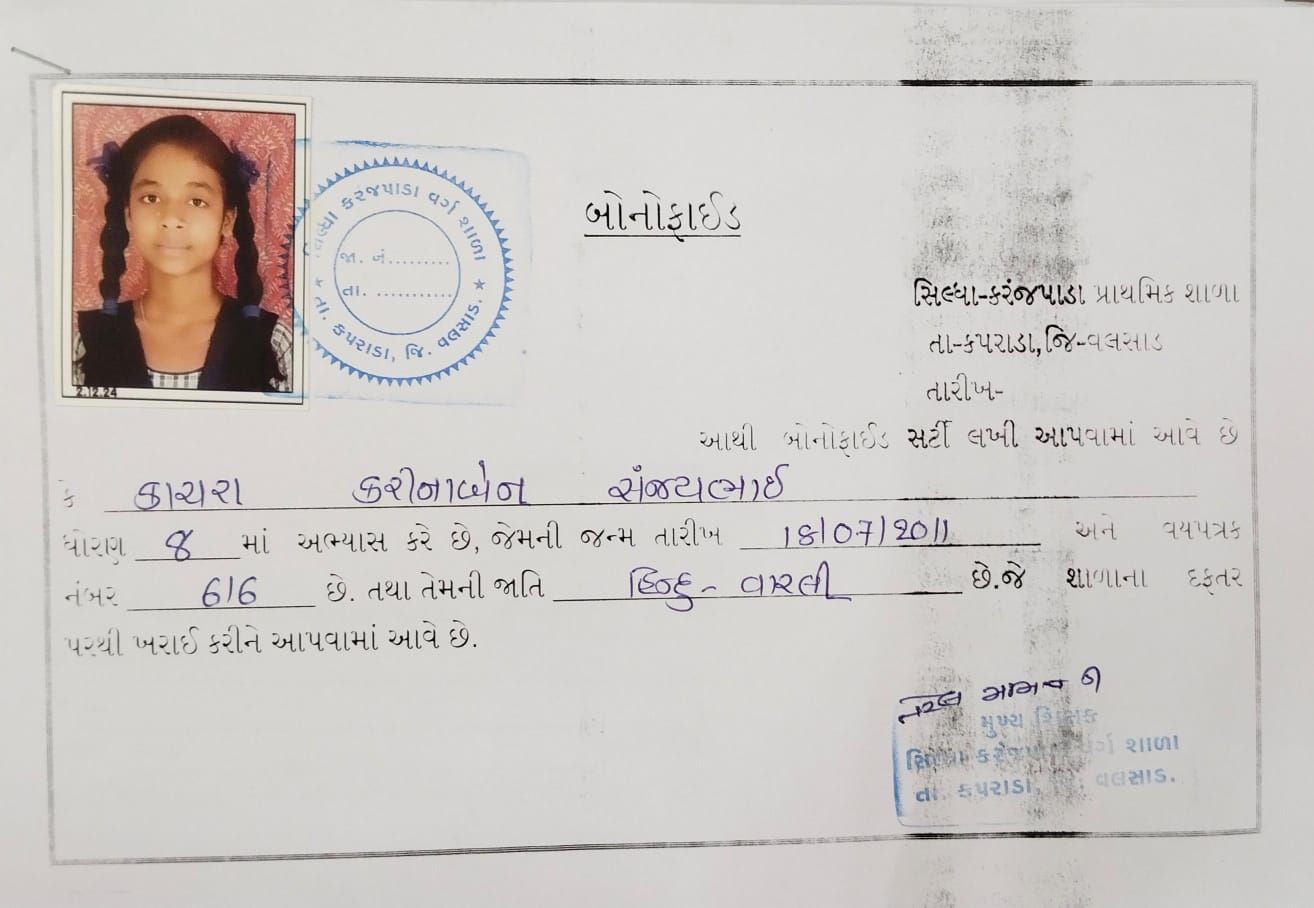 બોનોફાઈડ
સિલ્ધા કરંજપાડા વર્ગ શાળા
જા. નં.........
તા. ............
★ તા. કપરાડા, જિ. વલસાડ. ★
2.12.24
સિલ્ધા-કરંજપાડા પ્રાથમિક શાળા
તા-કપરાડા,જિ-વલસાડ
તારીખ-
આથી બોનોફાઈડ સર્ટી લખી આપવામાં આવે છે
કે કાચરા કરીનાબેન સંજયભાઈ
ધોરણ 8 માં અભ્યાસ કરે છે, જેમની જન્મ તારીખ 18/07/2011 અને વયપત્રક
નંબર 616 છે. તથા તેમની જાતિ હિન્દુ - વારલી છે.જે શાળાના દફતર
પરથી ખરાઈ કરીને આપવામાં આવે છે.
મુખ્ય શિક્ષક
સિલ્ધા કરંજપાડા વર્ગ શાળા
તા. કપરાડા, જિ. વલસાડ.